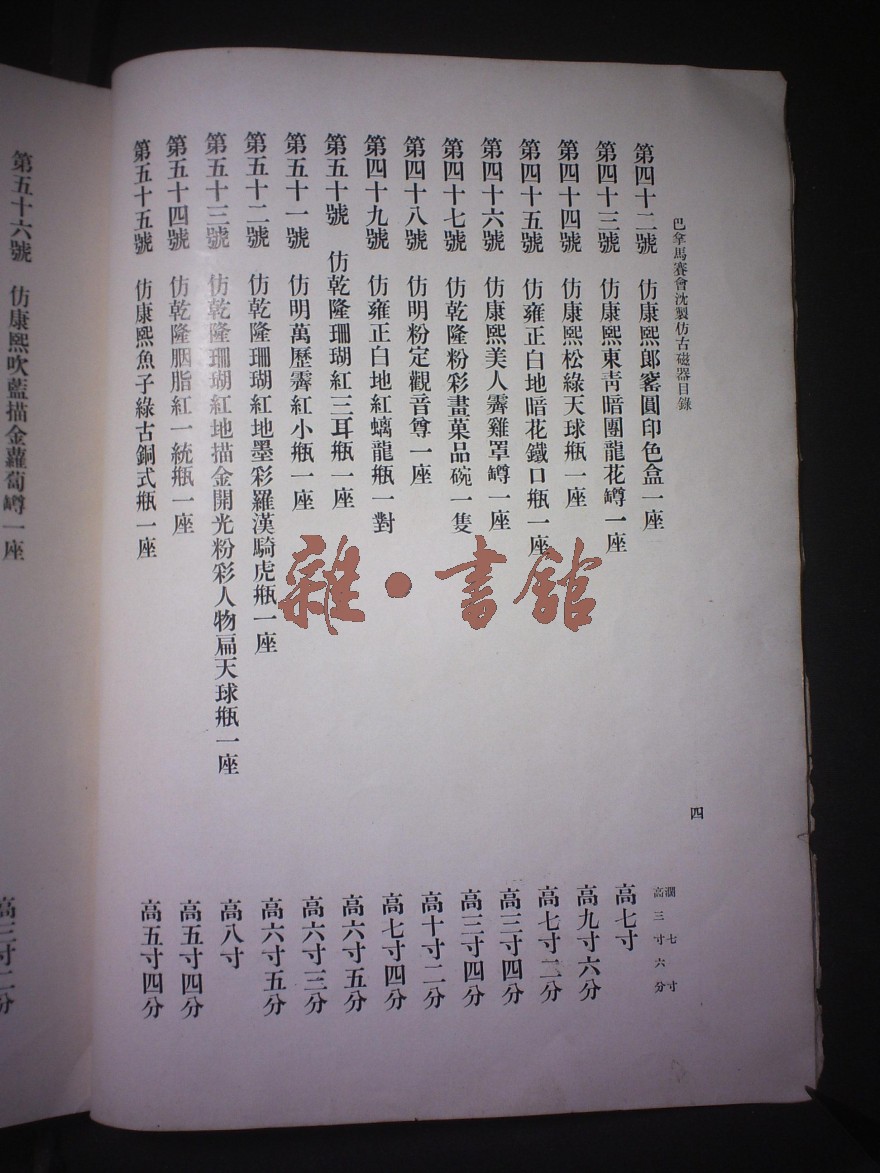 巴拿馬賽會沈製仿古磁器目錄
四
第四十二號 仿康熙郎窰圓印色盒一座 濶七寸 高三寸六分
第四十三號 仿康熙東靑暗團龍花罇一座 高七寸
第四十四號 仿康熙松綠天球甁一座 高九寸六分
第四十五號 仿雍正白地暗花鐵口甁一座 高七寸二分
第四十六號 仿康熙美人霽雞罩罇一座 高三寸四分
第四十七號 仿乾隆粉彩畫菓品碗一隻 高三寸四分
第四十八號 仿明粉定觀音尊一座 高十寸二分
第四十九號 仿雍正白地紅螭龍甁一對 高七寸四分
第五十號 仿乾隆珊瑚紅三耳甁一座 高六寸五分
第五十一號 仿明萬歷霽紅小甁一座 高六寸三分
第五十二號 仿乾隆珊瑚紅地墨彩羅漢騎虎甁一座 高六寸五分
第五十三號 仿乾隆珊瑚紅地描金開光粉彩人物扁天球甁一座 高八寸
第五十四號 仿乾隆胭脂紅一統甁一座 高五寸四分
第五十五號 仿康熙魚子綠古銅式甁一座 高五寸四分
第五十六號 仿康熙吹藍描金蘿蔔罇一座 高三寸二分
雜·書館